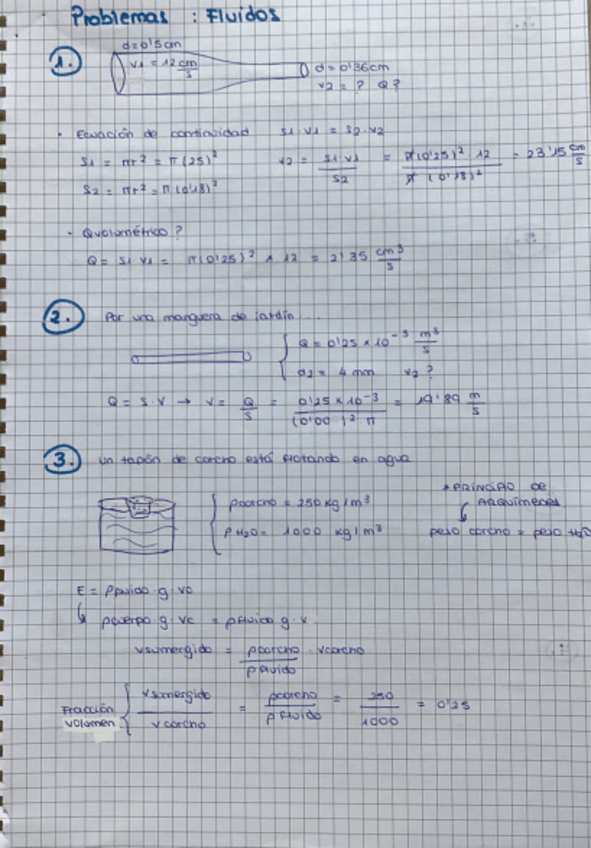 Problemas : Fluidos
1.
d=0'5cm
v1 = 12 cm/s
d = 0'36cm
v2 = ? Q?
• Ecuación de continuidad S1 · V1 = S2 · V2
S1 = πr² = π (25)²
v2 = S1·V1 / S2 = π(0'25)² · 12 / π (0'18)² = 23'15 cm/s
S2 = πr² = π (0'18)²
• Qvolumétrico?
Q = S1·V1 = π(0'25)² × 12 = 2'35 cm³/s
2. Por una manguera de jardín ...
Q = 0'25 × 10⁻³ m³/s
d2 = 4 mm v2?
Q = S·V → V = Q/S = 0'25 × 10⁻³ / (0'00 )² π = 19'89 m/s
3. un tapón de corcho está flotando en agua
ρcorcho = 250 kg/m³
ρH2O = 1000 kg/m³
* PRINCIPIO DE
ARQUÍMEDES
peso corcho = peso H2O
E = ρfluido g · vc
ρcuerpo g · vc = ρfluido g · v
vsumergido = ρcorcho / ρfluido · vcorcho
Fracción volumen { vsumergido / vcorcho = ρcorcho / ρfluido = 250 / 1000 = 0'25